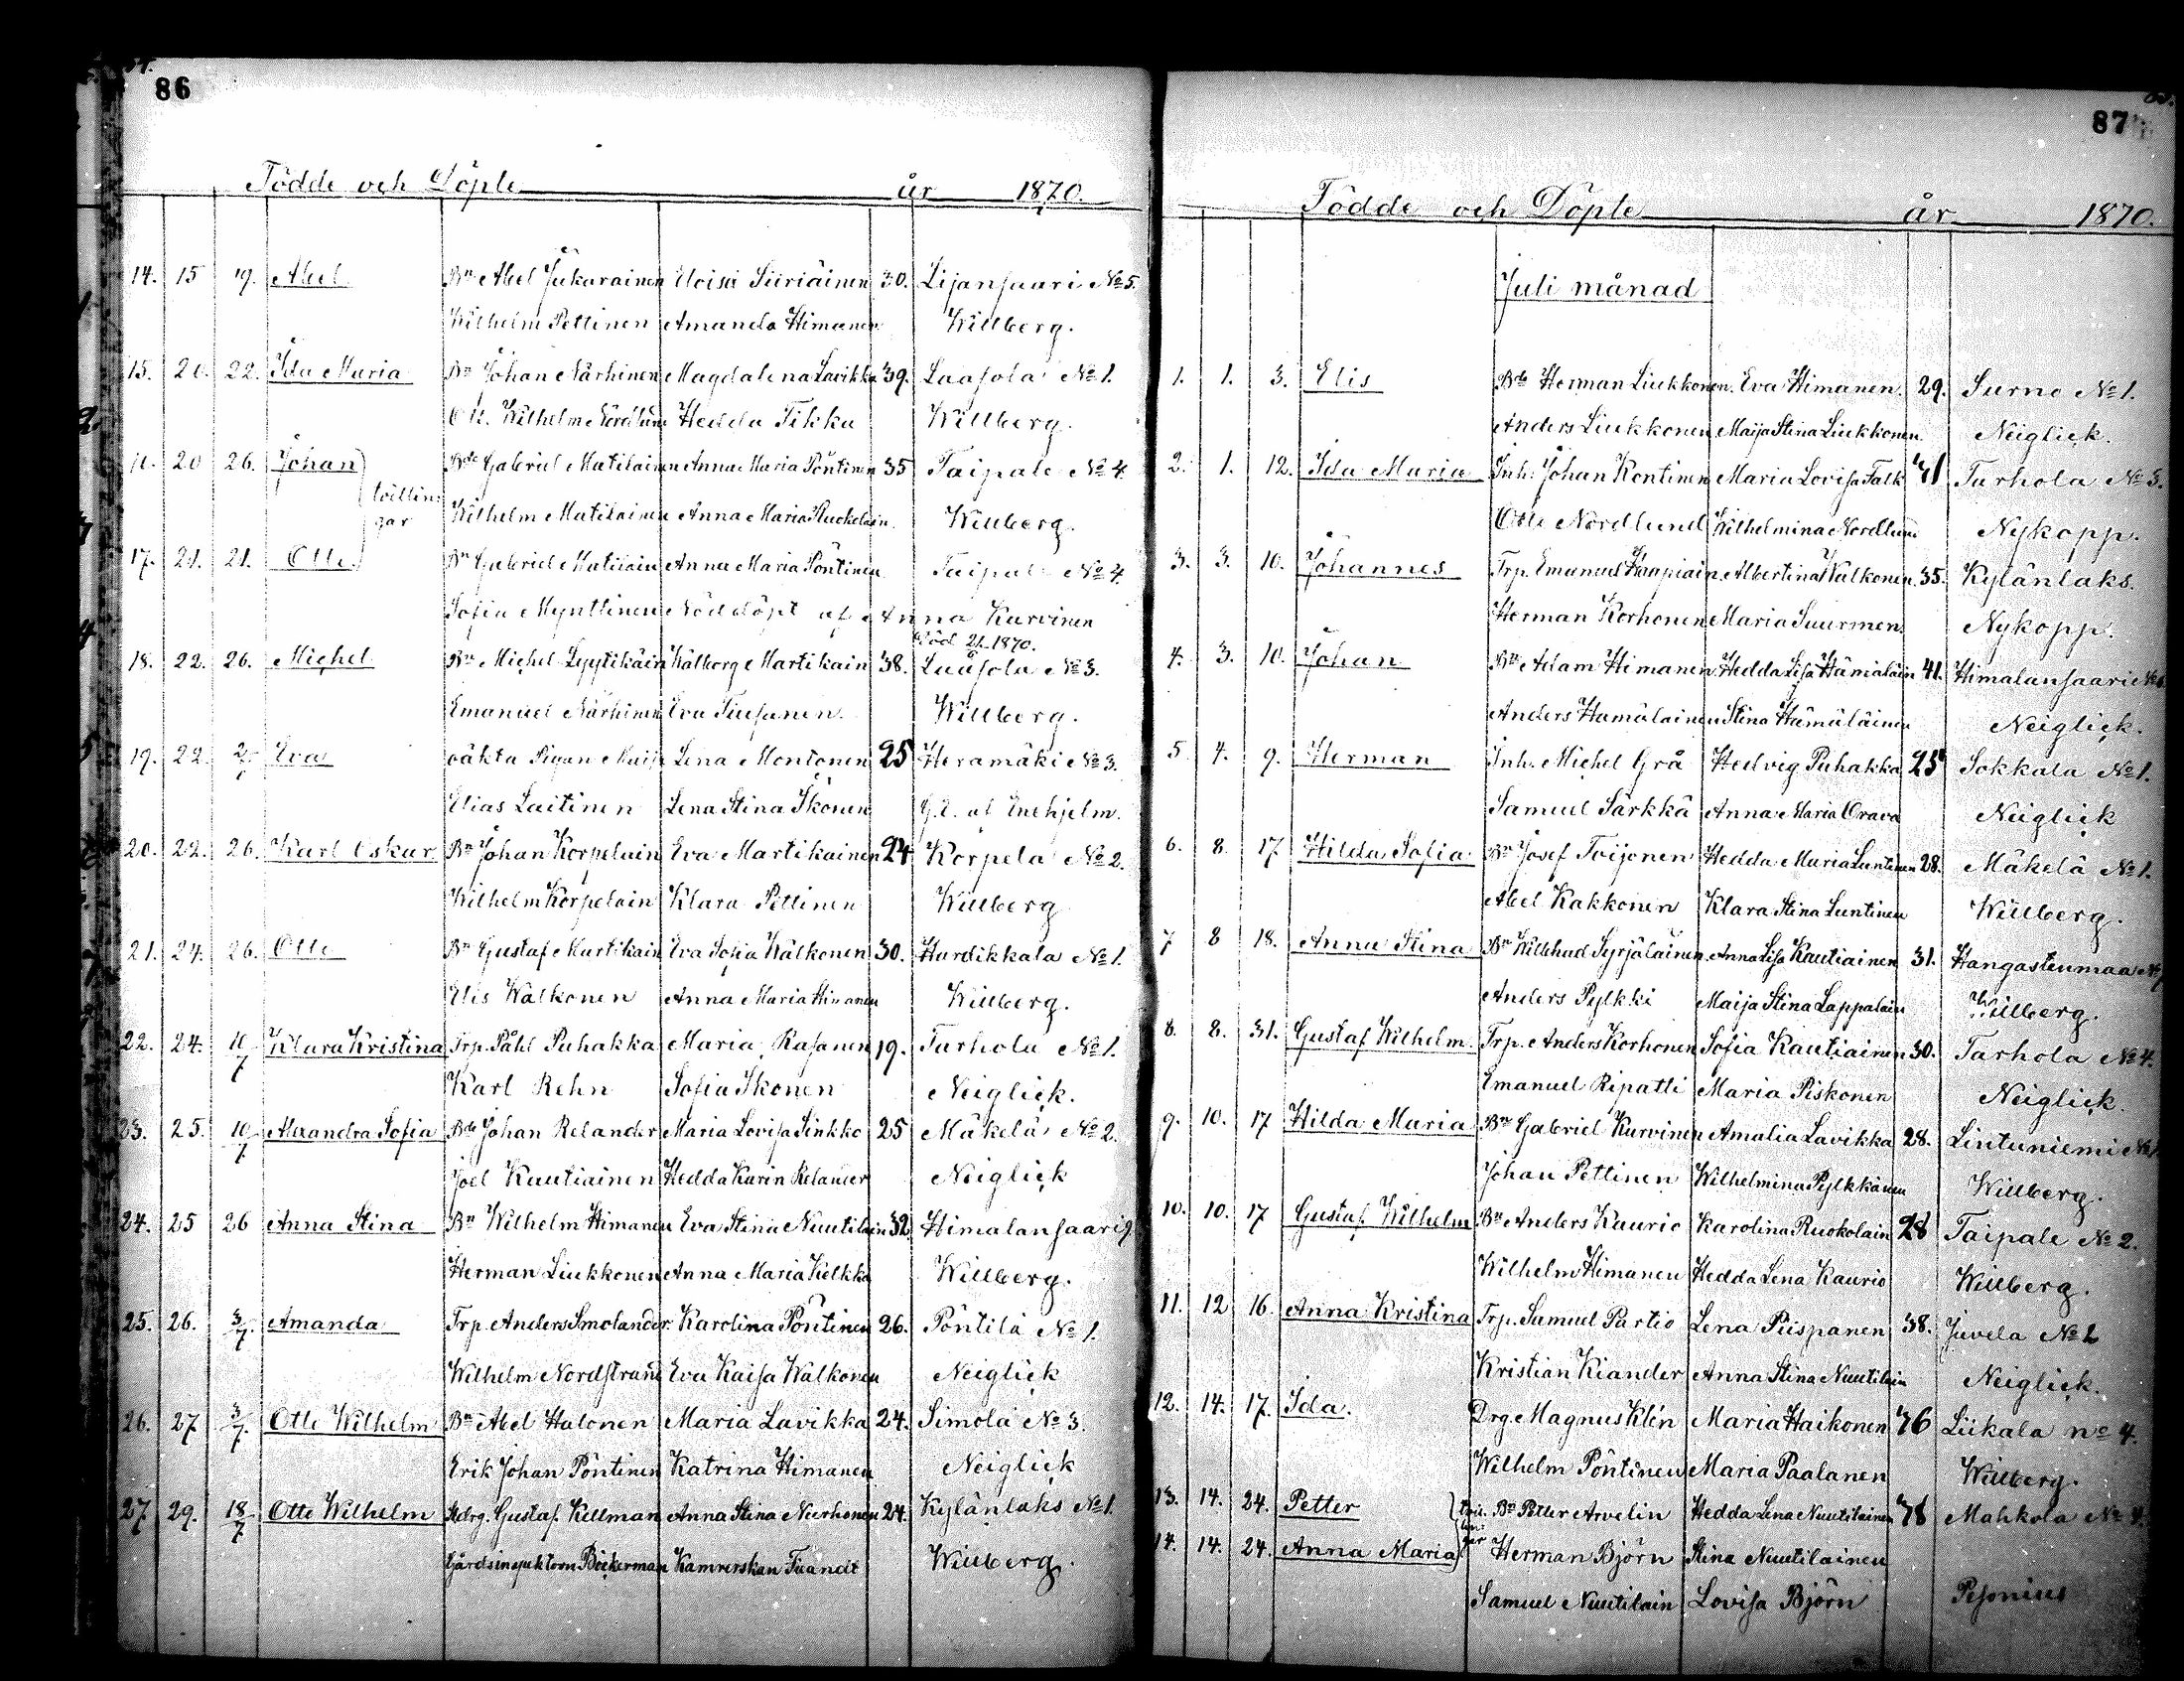 86
Födde och Döpte år 1870.
14. 15 19. Abel Bn Abel Jukarainen Eloisa Siiriäinen 30. Lijansaari No 5.
Wilhelm Pettinen Amanda Himanen Willberg.
15. 20. 22. Ida Maria Bn Johan Närhinen Magdalena Lavikka 39. Laasola No 1.
Ott. Wilhelm Nordlund Hedda Tikka Willberg.
20 26. Johan Bde Gabriel Matilainen Anna Maria Pöntinen 35 Taipale No 4.
tvillingar Wilhelm Matilainen Anna Maria Ruokolain. Willberg.
17. 21. 21. Otto Bn Gabriel Matilain Anna Maria Pöntinen Taipale No 4
Sofia Mynttinen Nöddöpt af Anna Kurvinen
Död 21. 1870.
18. 22. 26. Michel Bn Michel Lyytikäin Walborg Martikain 38. Laasola No 3.
Emanuel Närhinen Eva Tiusanen. Willberg.
19. 22. Eva oäkta Pigan Lena Montonen 25 Heramäki No 3.
Elias Laitinen Lena Stina Ikonen G. E. af Enehjelm.
20. 22. 26. Karl Oskar Bn Johan Korpelain Eva Martikainen 24 Korpela No 2.
Wilhelm Korpelain Klara Pettinen Willberg
21. 24. 26. Otto Bn Gustaf Martikain Eva Sofia Walkonen 30. Hurdikkala No 1.
Elis Walkonen Anna Maria Himanen Willberg.
22. 24. 10/7 Klara Kristina Trp. Påhl Puhakka Maria Rasanen 19. Turhola No 1.
Karl Rehn Sofia Ikonen Neiglick.
23. 25. 10/7 Alexandra Sofia Bde Johan Relander Maria Lovisa Sinkko 25 Mäkelä No 2.
Joel Kautiainen Hedda Karin Relander Neiglick
24. 25 26 Anna Stina Bn Wilhelm Himanen Eva Stina Nuutilain 32 Himalansaari 9.
Herman Liukkonen Anna Maria Kielkka Willberg.
25. 26. 3/7. Amanda Trp. Anders Smolander. Karolina Pöntinen 26. Pöntilä No 1.
Wilhelm Nordstrand Eva Kaisa Walkonen Neiglick
26. 27 3/7. Otto Wilhelm Bn Abel Halonen Maria Lavikka 24. Simola No 3.
Erik Johan Pöntinen Katrina Himanen Neiglick
27 29. 18/7 Otto Wilhelm Stdrg. Gustaf Killman Anna Stina Neerhonen 24. Kylänlaks No 1.
Gårdsinspektorn Böckerman Kamrerskan Tuandt Willberg.
87
Födde och Döpte år 1870.
Juli månad
1. 1. 3. Elis Bde Herman Liukkonen. Eva Himanen. 29. Surno No 1.
Anders Liukkonen Maija Stina Liukkonen. Neiglick.
2. 1. 12. Ida Maria Inh. Johan Kontinen Maria Lovisa Falk 41 Turhola No 3.
Otto Nordlund Wilhelmina Nordlund Nykopp.
3. 3. 10. Johannes Trp. Emanuel Kaapiain Albertina Walkonen. 35. Kylänlaks.
Herman Korhonen Maria Suurmen. Nykopp.
4. 3. 10. Johan Bn Adam Himanen Hedda Lisa Hämäläin 41. Himalansaari
Anders Hämäläinen Stina Hämäläinen Neiglick.
5 4. 9. Herman Inh. Michel Grå Hedvig Puhakka 25 Sokkala No 1.
Samuel Särkkä Anna Maria Orava Neiglick
6. 8. 17 Hilda Sofia Bn Josef Toijonen Hedda Maria Luntinen 28. Mäkelä No 1.
Abel Kakkonen Klara Stina Luntinen Willberg.
7 8 18. Anna Stina Bn Willehad Syrjäläinen Anna Lisa Kautiainen 31. Kangastenmaa
Anders Pylkki Maija Stina Lappalain Willberg.
8. 8. 31. Gustaf Wilhelm. Trp. Anders Korhonen Sofia Kautiainen 30. Tarhola No 4.
Emanuel Ripatti Maria Piskonen Neiglick.
9. 10. 17 Hilda Maria Bn Gabriel Kurvinen Amalia Lavikka 28. Lintuniemi No 1
Johan Pettinen Wilhelmina Pylkkänen Willberg.
10. 10. 17 Gustaf Wilhelm Bn Anders Kaurio Karolina Ruokolain 28 Taipale No 2.
Wilhelm Himanen Hedda Lena Kaurio Willberg.
11. 12 16. Anna Kristina Trp. Samuel Partio Lena Piispanen 38. Juvela No 2
Kristian Kiander Anna Stina Nuutilain Neiglick.
12. 14. 17. Ida. Drg. Magnus Klén Maria Haikonen 36 Liikala no 4.
Wilhelm Pöntinen Maria Paalanen Willberg.
13. 14. 24. Petter tvillingar Bn Petter Arvelin Hedda Lena Nuutilainen 38 Mahkola No 4.
14. 14. 24. Anna Maria Herman Björn Stina Nuutilainen
Samuel Nuutilain Lovisa Björn Pesonius